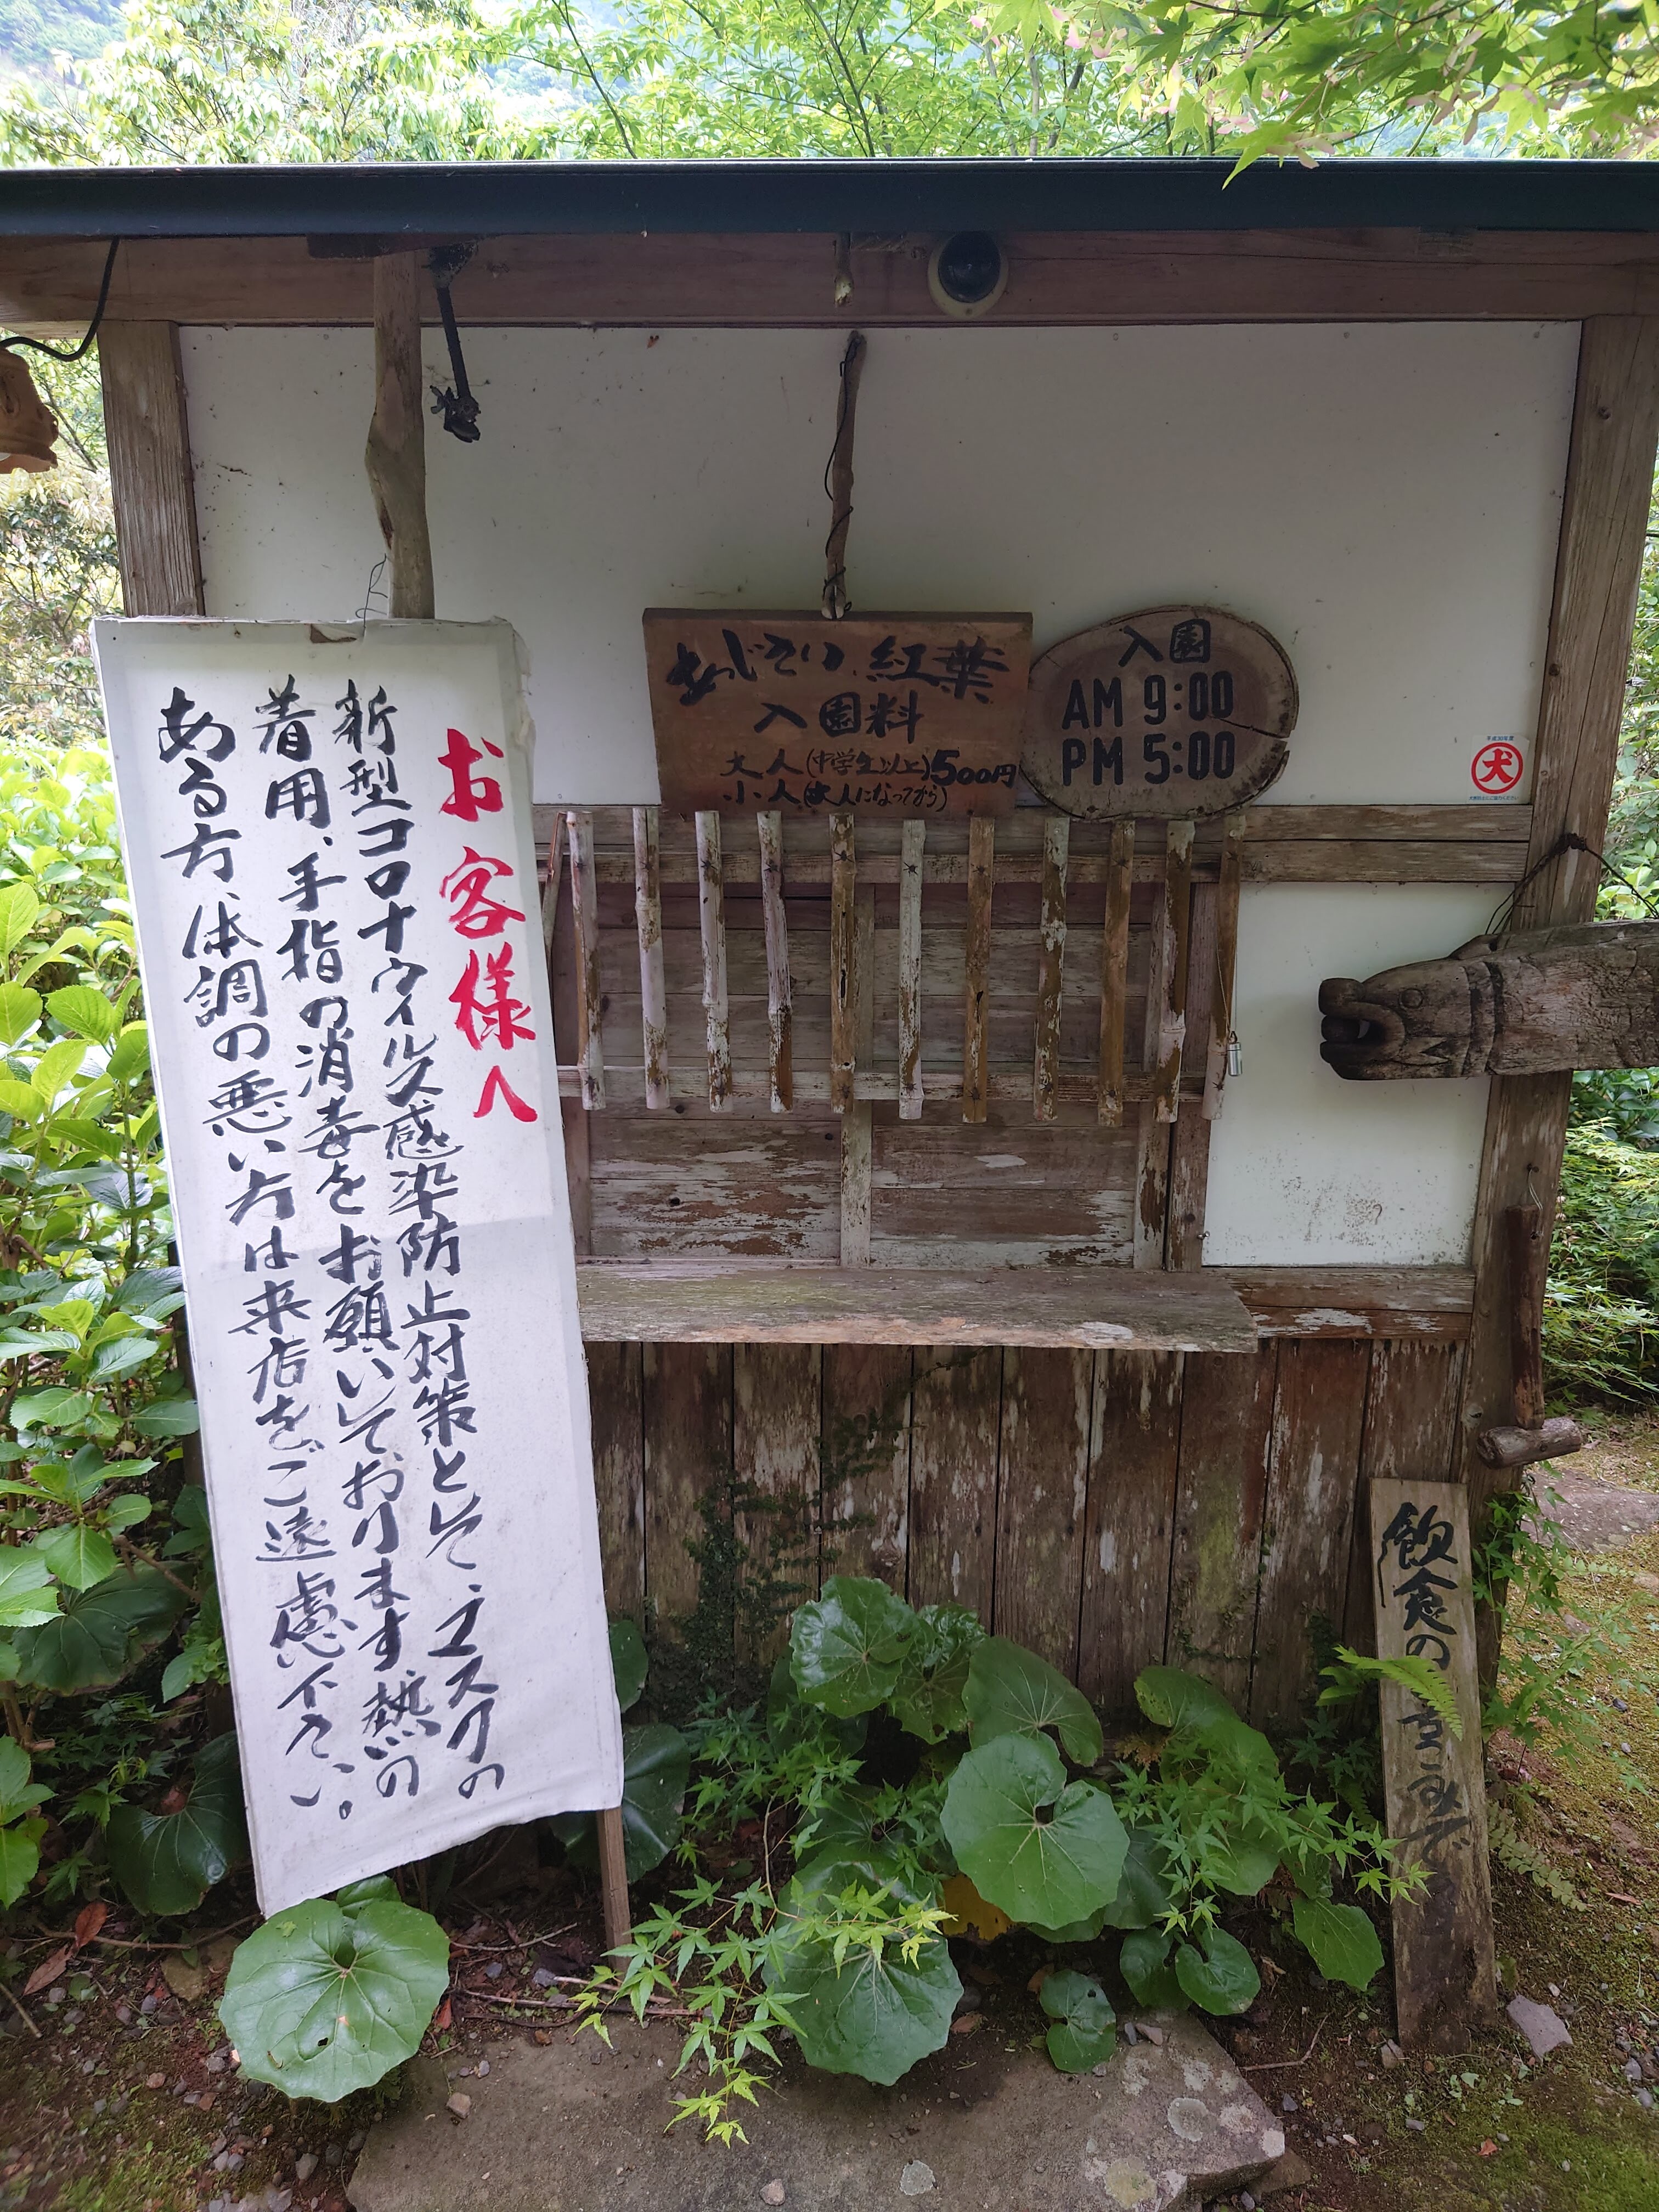 お客様へ
新型コロナウイルス感染防止対策として、マスクの
着用、手指の消毒をお願いしております熱の
ある方、体調の悪い方は来店をご遠慮下さい。
あじさい、紅葉
入園料
大人(中学生以上)500円
小人(大人になってから)
入園
AM 9:00
PM 5:00
平成30年度
犬
飲食の